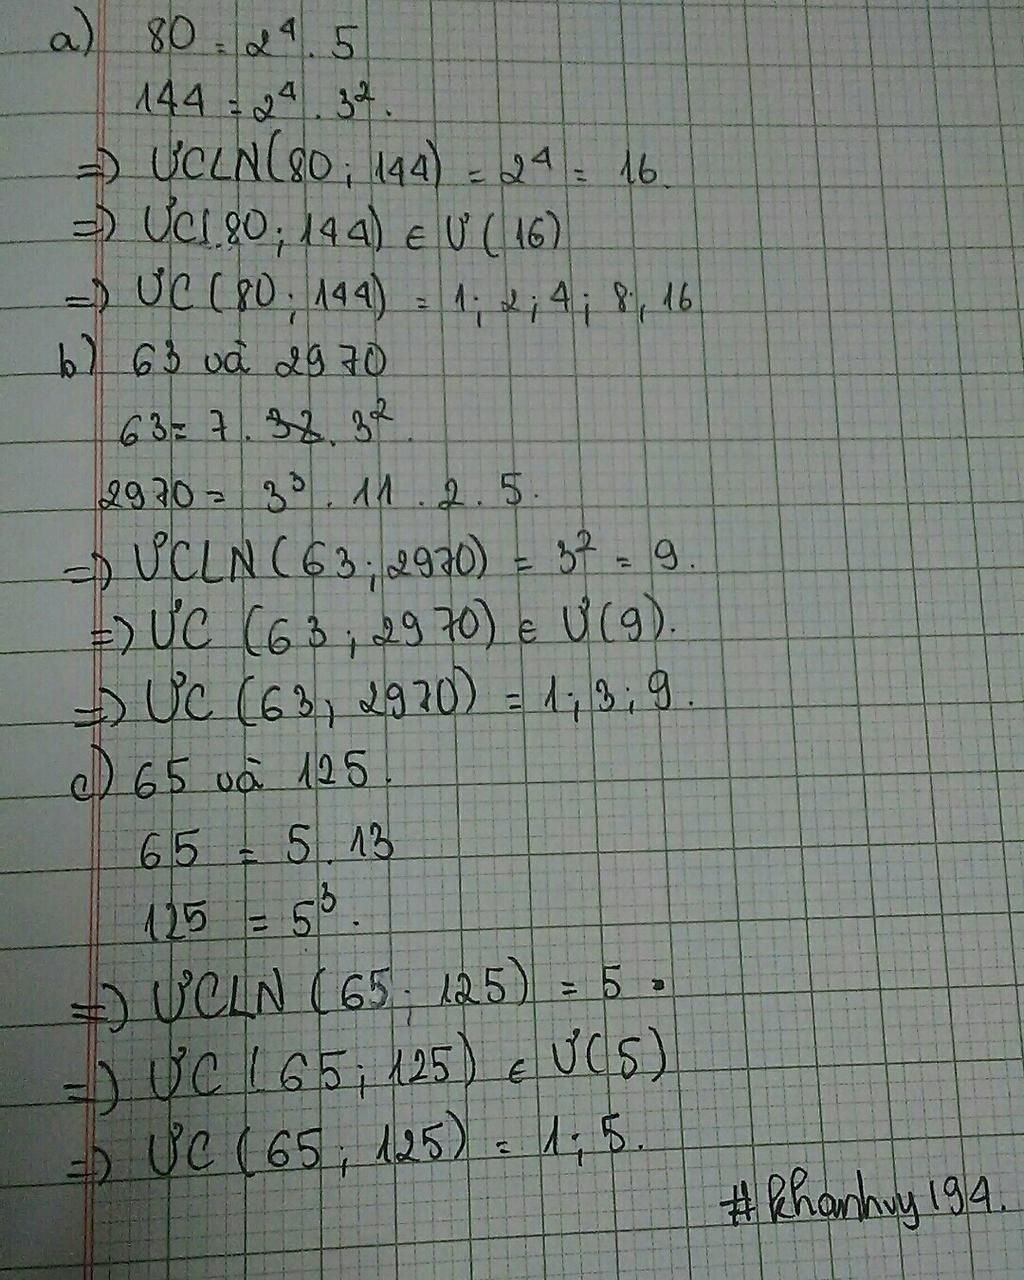 a) 80 = 2⁴ . 5
144 = 2⁴ . 3².
=> ƯCLN(80 ; 144) = 2⁴ = 16.
=> ƯC(80 ; 144) ∈ Ư(16)
=> ƯC (80 ; 144) = 1 ; 2 ; 4 ; 8 ; 16
b) 63 và 2970
63 = 7 . 3².
2970 = 3³ . 11 . 2 . 5.
=> ƯCLN (63 ; 2970) = 3² = 9.
=> ƯC (63 ; 2970) ∈ Ư(9).
=> ƯC (63 ; 2970) = 1 ; 3 ; 9.
c) 65 và 125.
65 = 5 . 13
125 = 5³.
=> ƯCLN (65 ; 125) = 5.
=> ƯC (65 ; 125) ∈ Ư(5)
=> ƯC (65 ; 125) = 1 ; 5.
# khanhvy194.